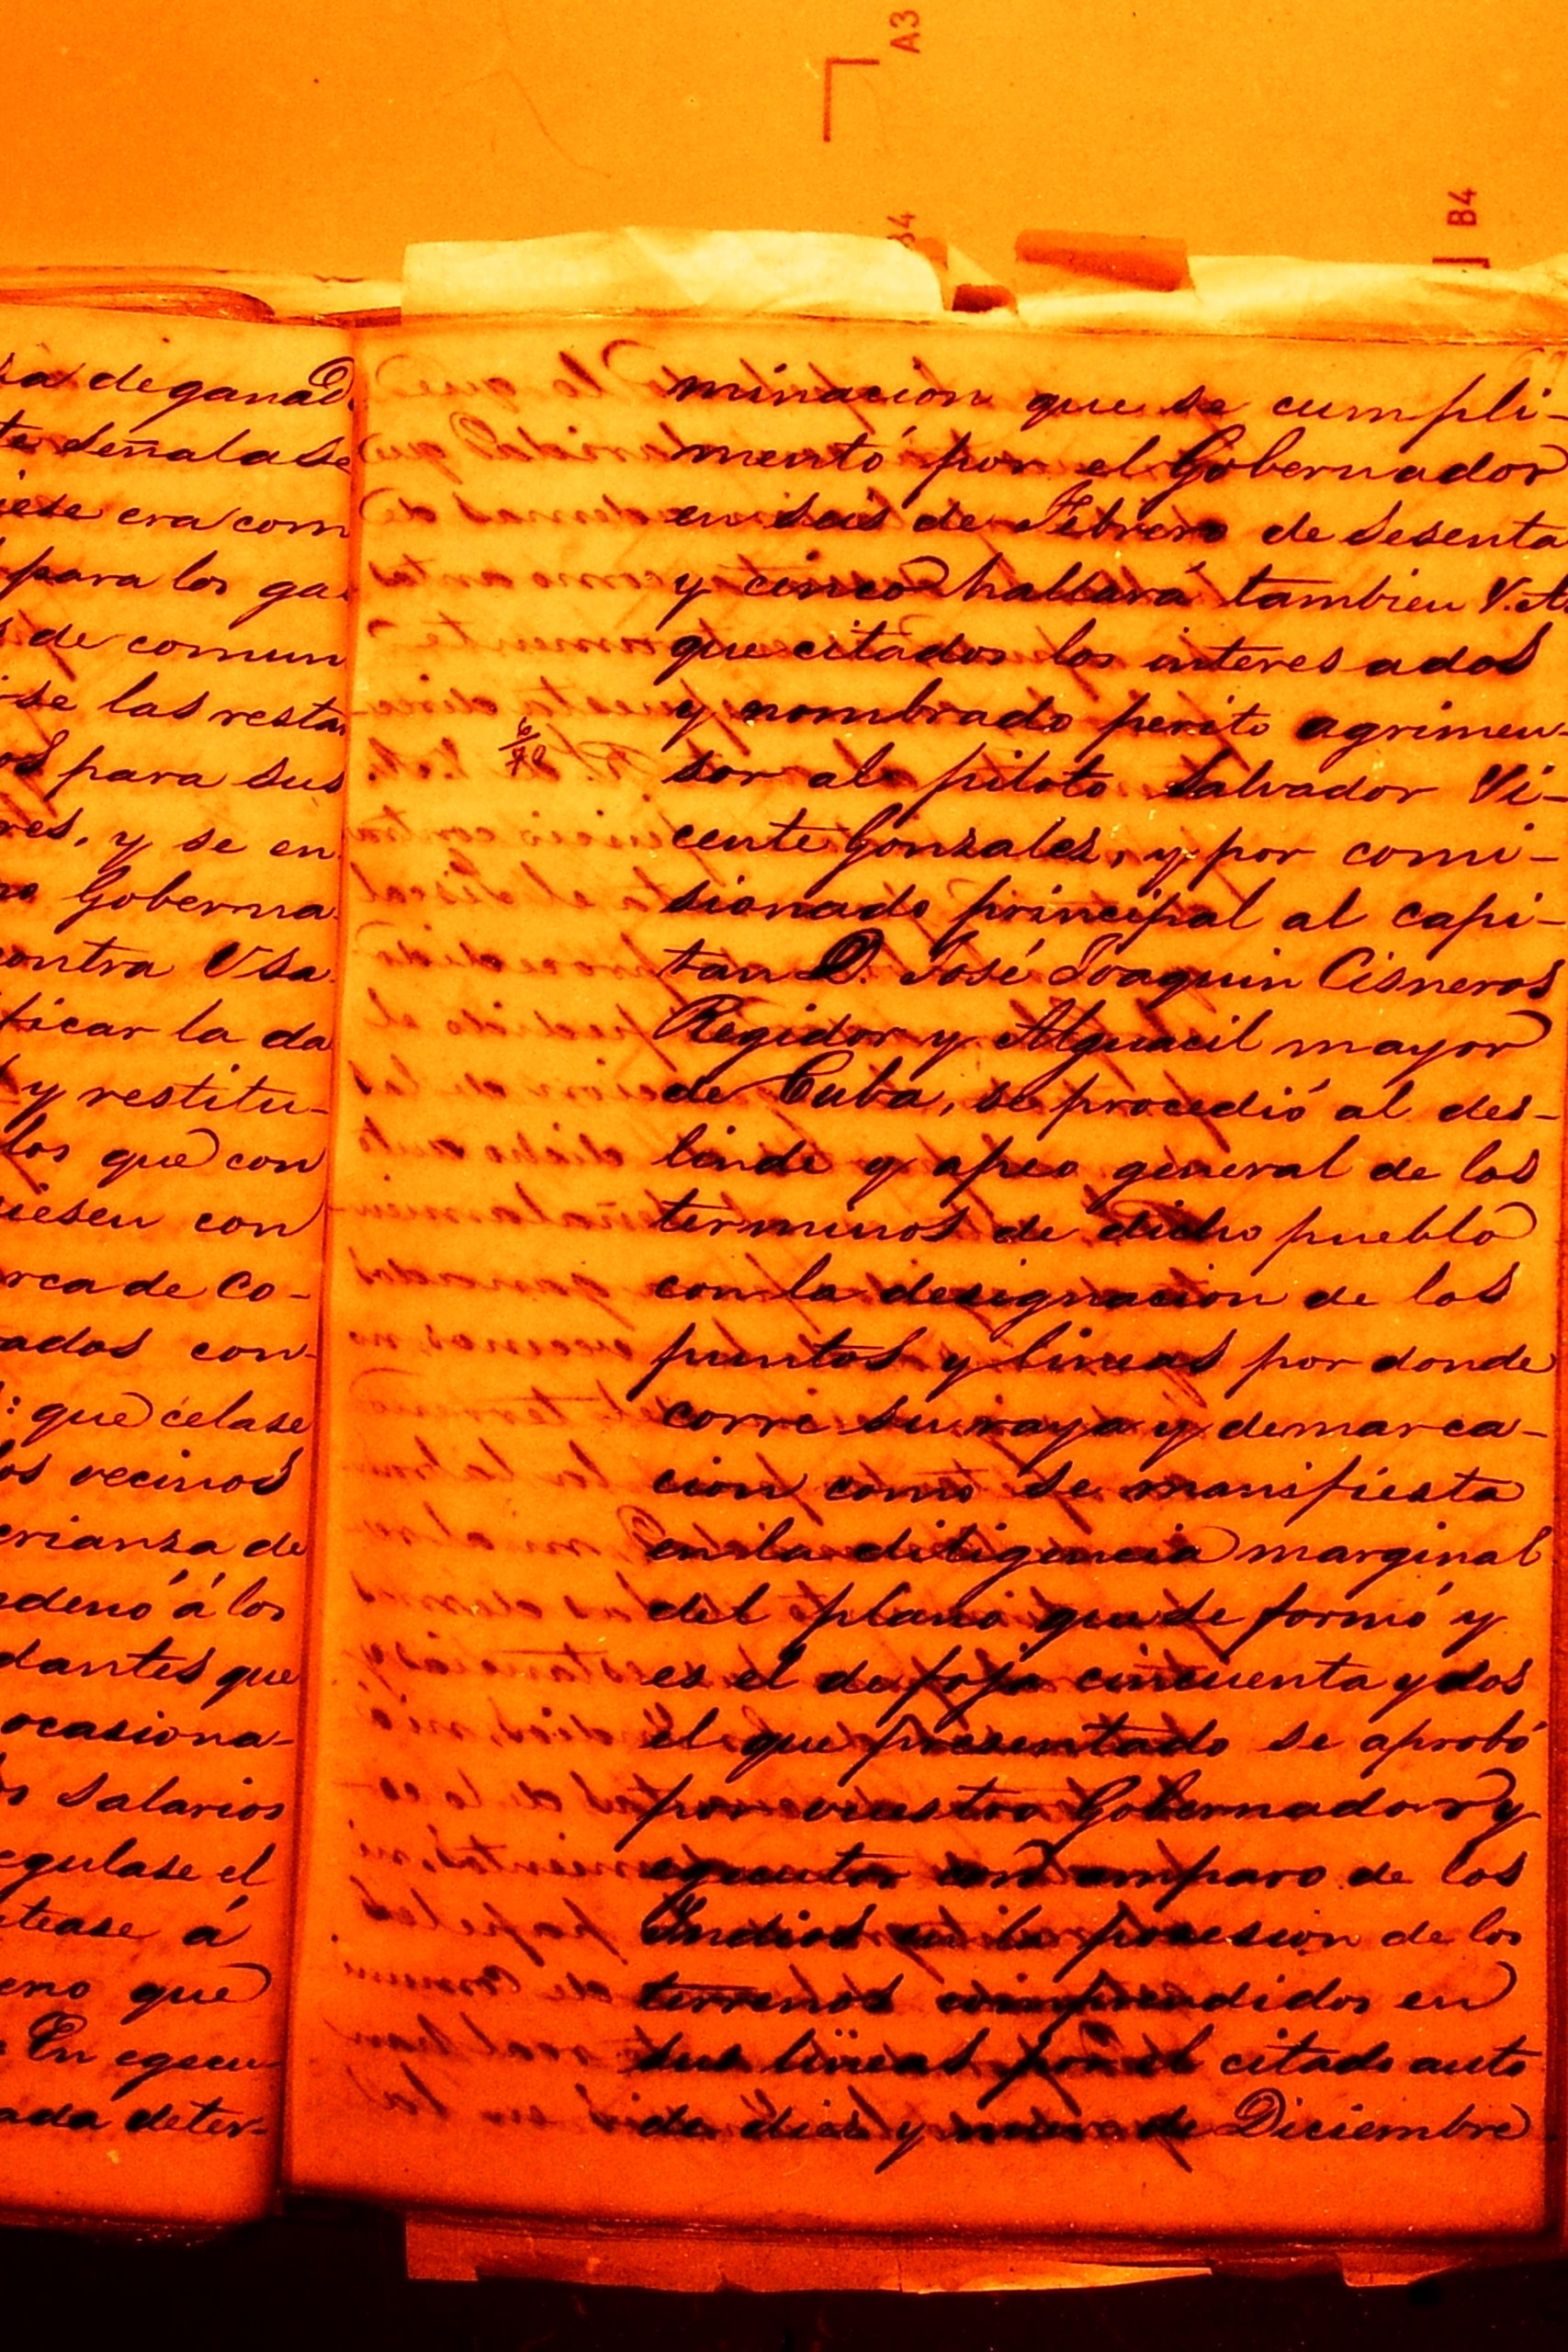 A3
B4
34
de ganad
te señalase
iese era com
para los ga
de comun
se las resta
para sus
res, y se en
Goberna
contra Usa
ficar la da
y restitu-
los que con
iesen con
rca de Co-
ados con-
: que celase
os vecinos
crianza de
denó á los
dantes que
ocasiona-
salarios
egulase el
tease á
eno que
En egecu-
ada deter-
minacion que se cumpli-
mentó por el Gobernador
en seis de Febrero de sesenta
y cinco hallará tambien V.A.
que citados los interesados
y nombrado perito agrimen-
6/78
sor al piloto Salvador Vi-
cente Gonzalez, y por comi-
sionado principal al capi-
tan D. José Joaquin Cisneros
Regidor y Alguacil mayor
de Cuba, se procedió al des-
linde y apeo general de los
terminos de dicho pueblo
con la designacion de los
puntos y lineas por donde
corre su raya y demarca-
cion como se manifiesta
en la diligencia marginal
del plano que se formó y
es el de foja cincuenta y dos
el que presentado se aprobó
por vuestro Gobernador y
egecutor con amparo de los
Indios en la posesion de los
terrenos comprendidos en
sus lineas por el citado auto
de diez y nueve de Diciembre